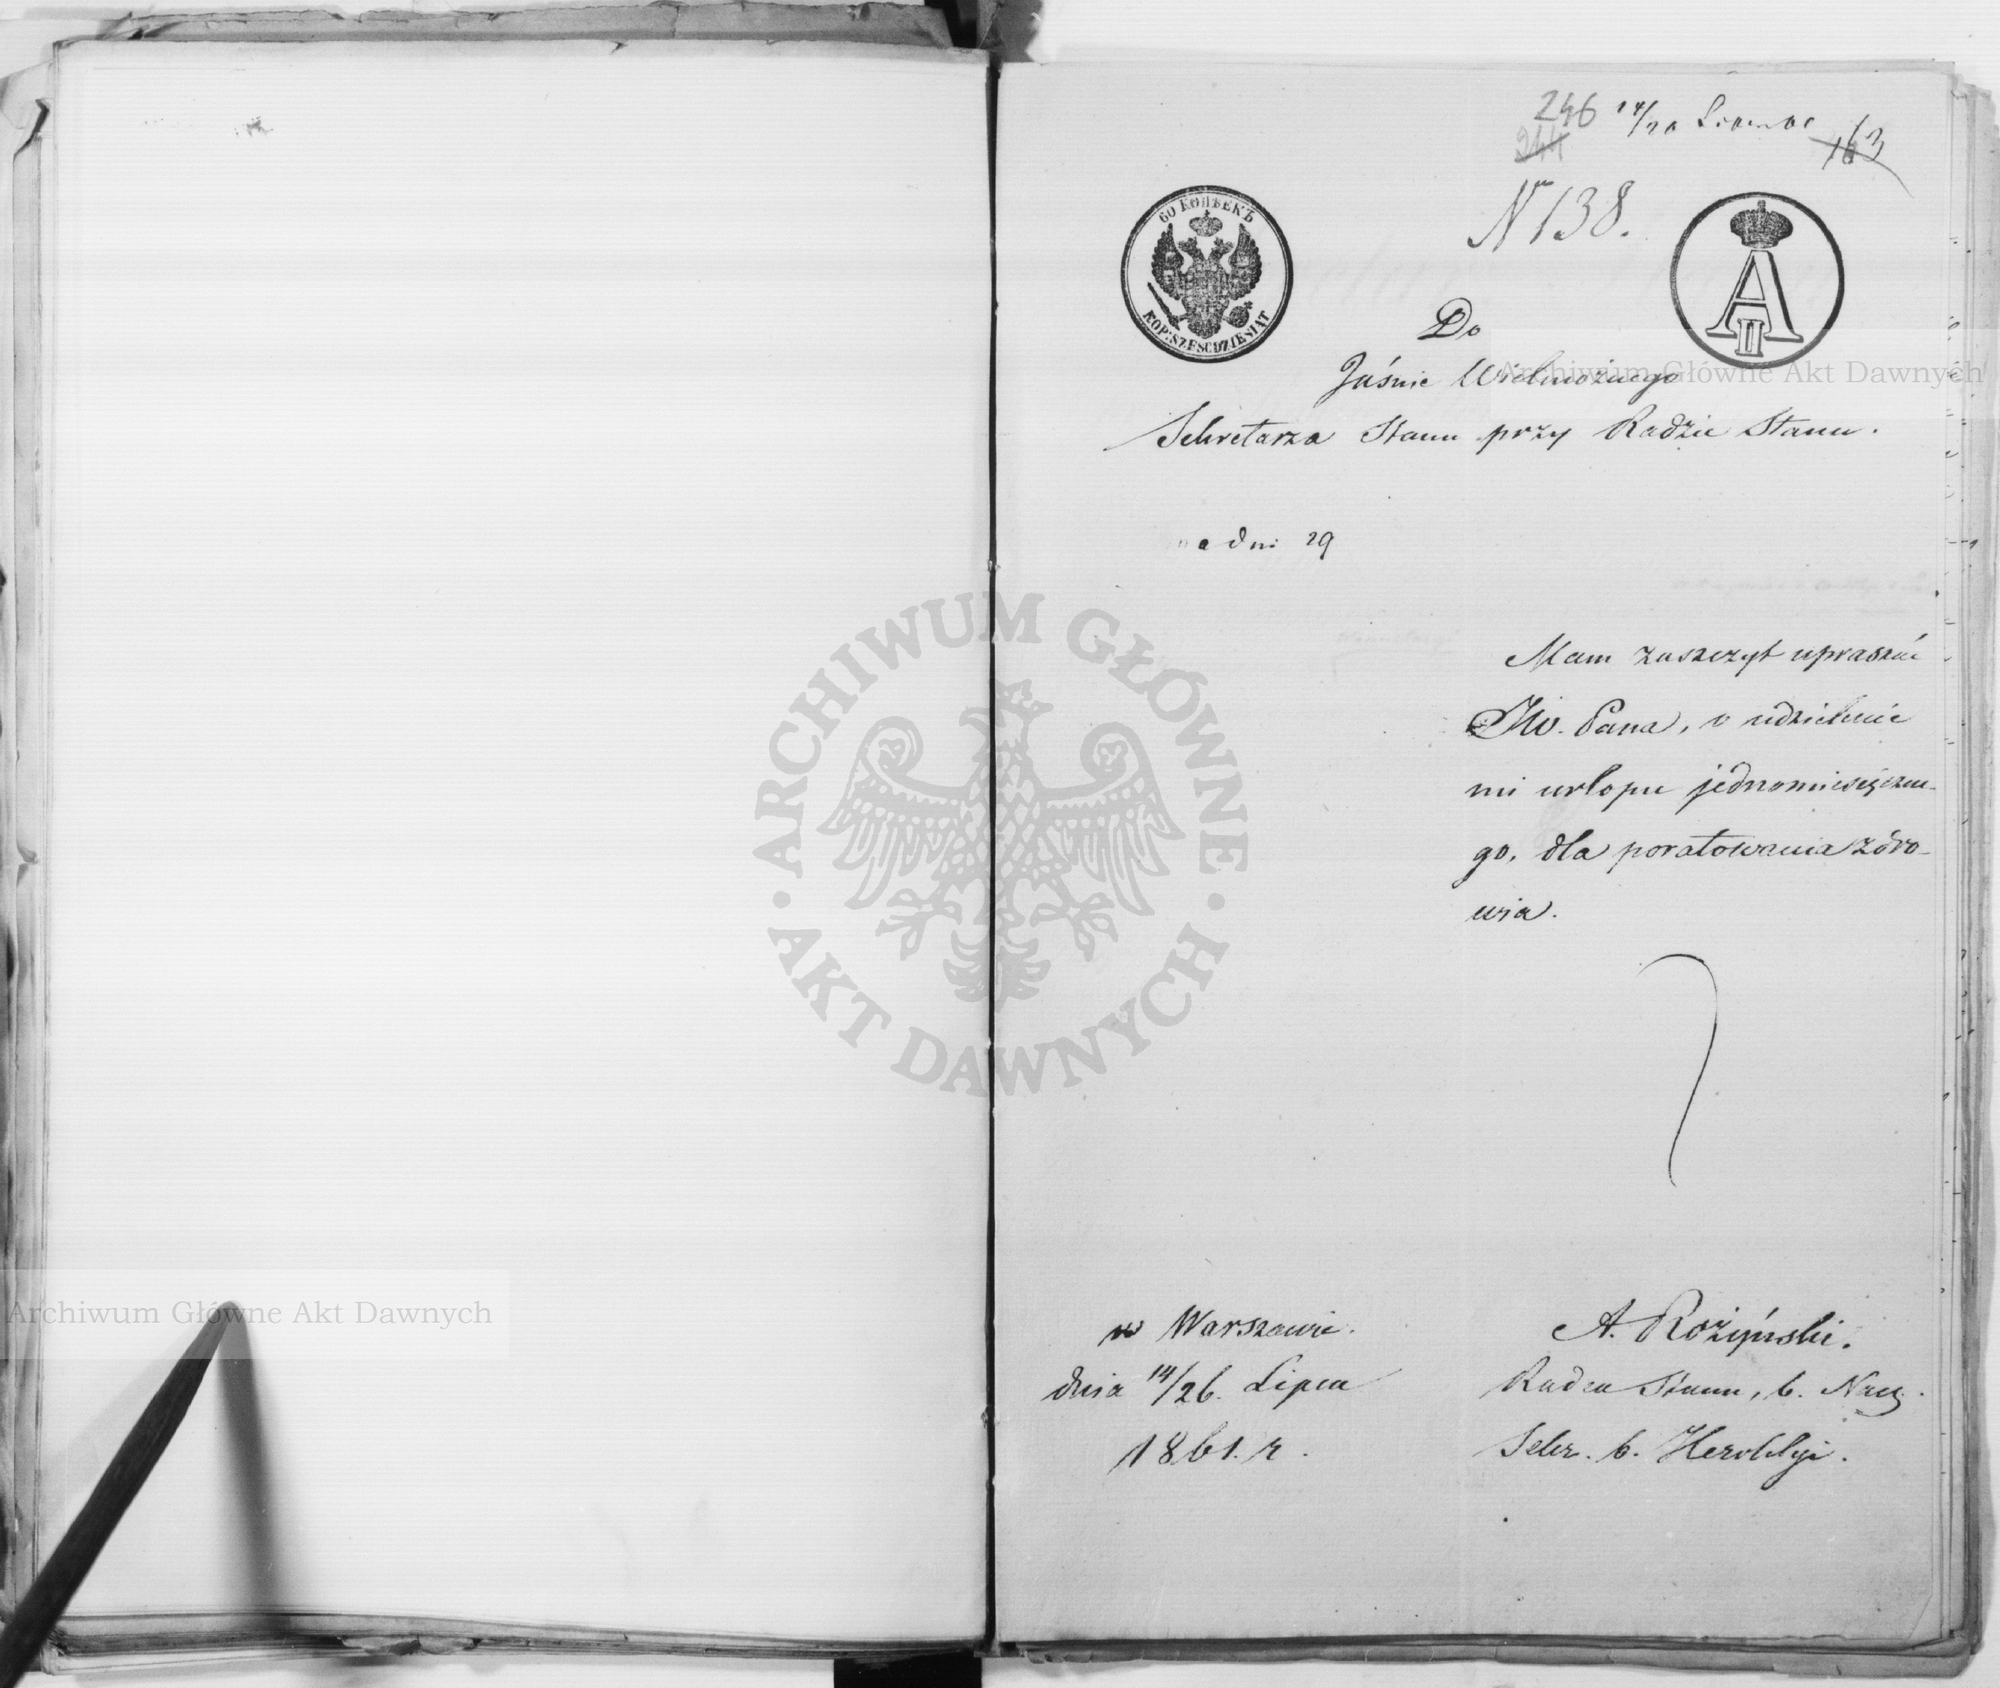 246
244
163
Nr 138.
60 КОПѢЕКЪ
KOP: SZEŚĆDZIESIĄT
A
II
Do
Jaśnie Wielmożnego
Sekretarza Stanu przy Radzie Stanu.
dni 29
Mam zaszczyt upraszać
JW. Pana, o udzielenie
mi urlopu jednomiesięczne-
go, dla poratowania zdro-
wia.
w Warszawie.
dnia 14/26. Lipca
1861. r.
A. Różyński.
Radca Stanu, b. Nacz.
Sekr. b. Heroldyi.
ARCHIWUM GŁÓWNE
AKT DAWNYCH
Archiwum Główne Akt Dawnych
Archiwum Główne Akt Dawnych